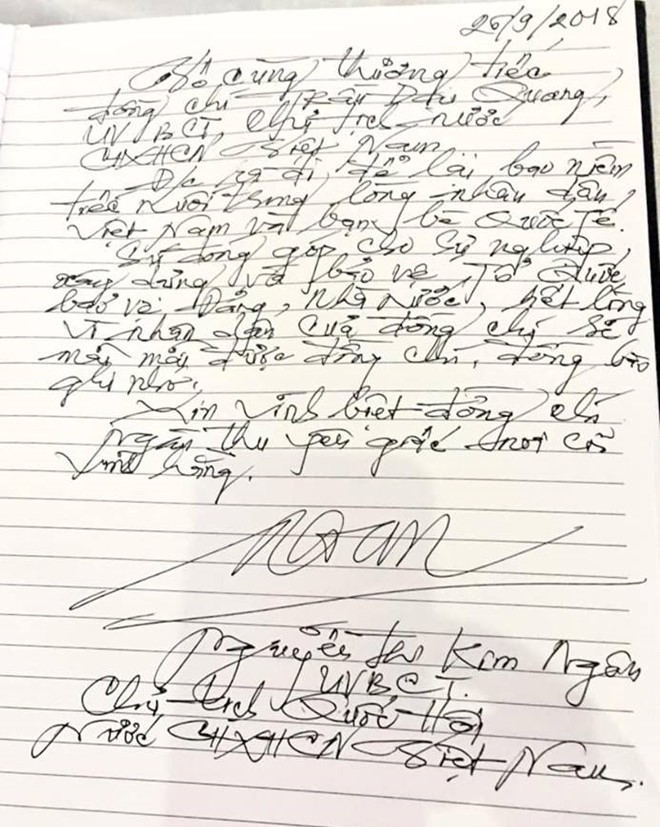 26/9/2018
Vô cùng thương tiếc
đồng chí Trần Đại Quang,
UVBCT, Chủ tịch nước
CHXHCN Việt Nam.
Đ/c ra đi, để lại bao niềm
tiếc nuối trong lòng nhân dân,
Việt Nam và bạn bè Quốc Tế.
Sự đóng góp cho sự nghiệp,
xây dựng và bảo vệ Tổ Quốc
bảo vệ Đảng, Nhà nước, hết lòng
vì nhân dân của đồng chí sẽ
mãi mãi được đồng chí, đồng bào
ghi nhớ.
Xin vĩnh biệt đồng chí
ngàn thu yên giấc nơi cõi
vĩnh hằng.
Ngân
Nguyễn Thị Kim Ngân
UVBCT.
Chủ tịch Quốc Hội
Nước CHXHCN Việt Nam.